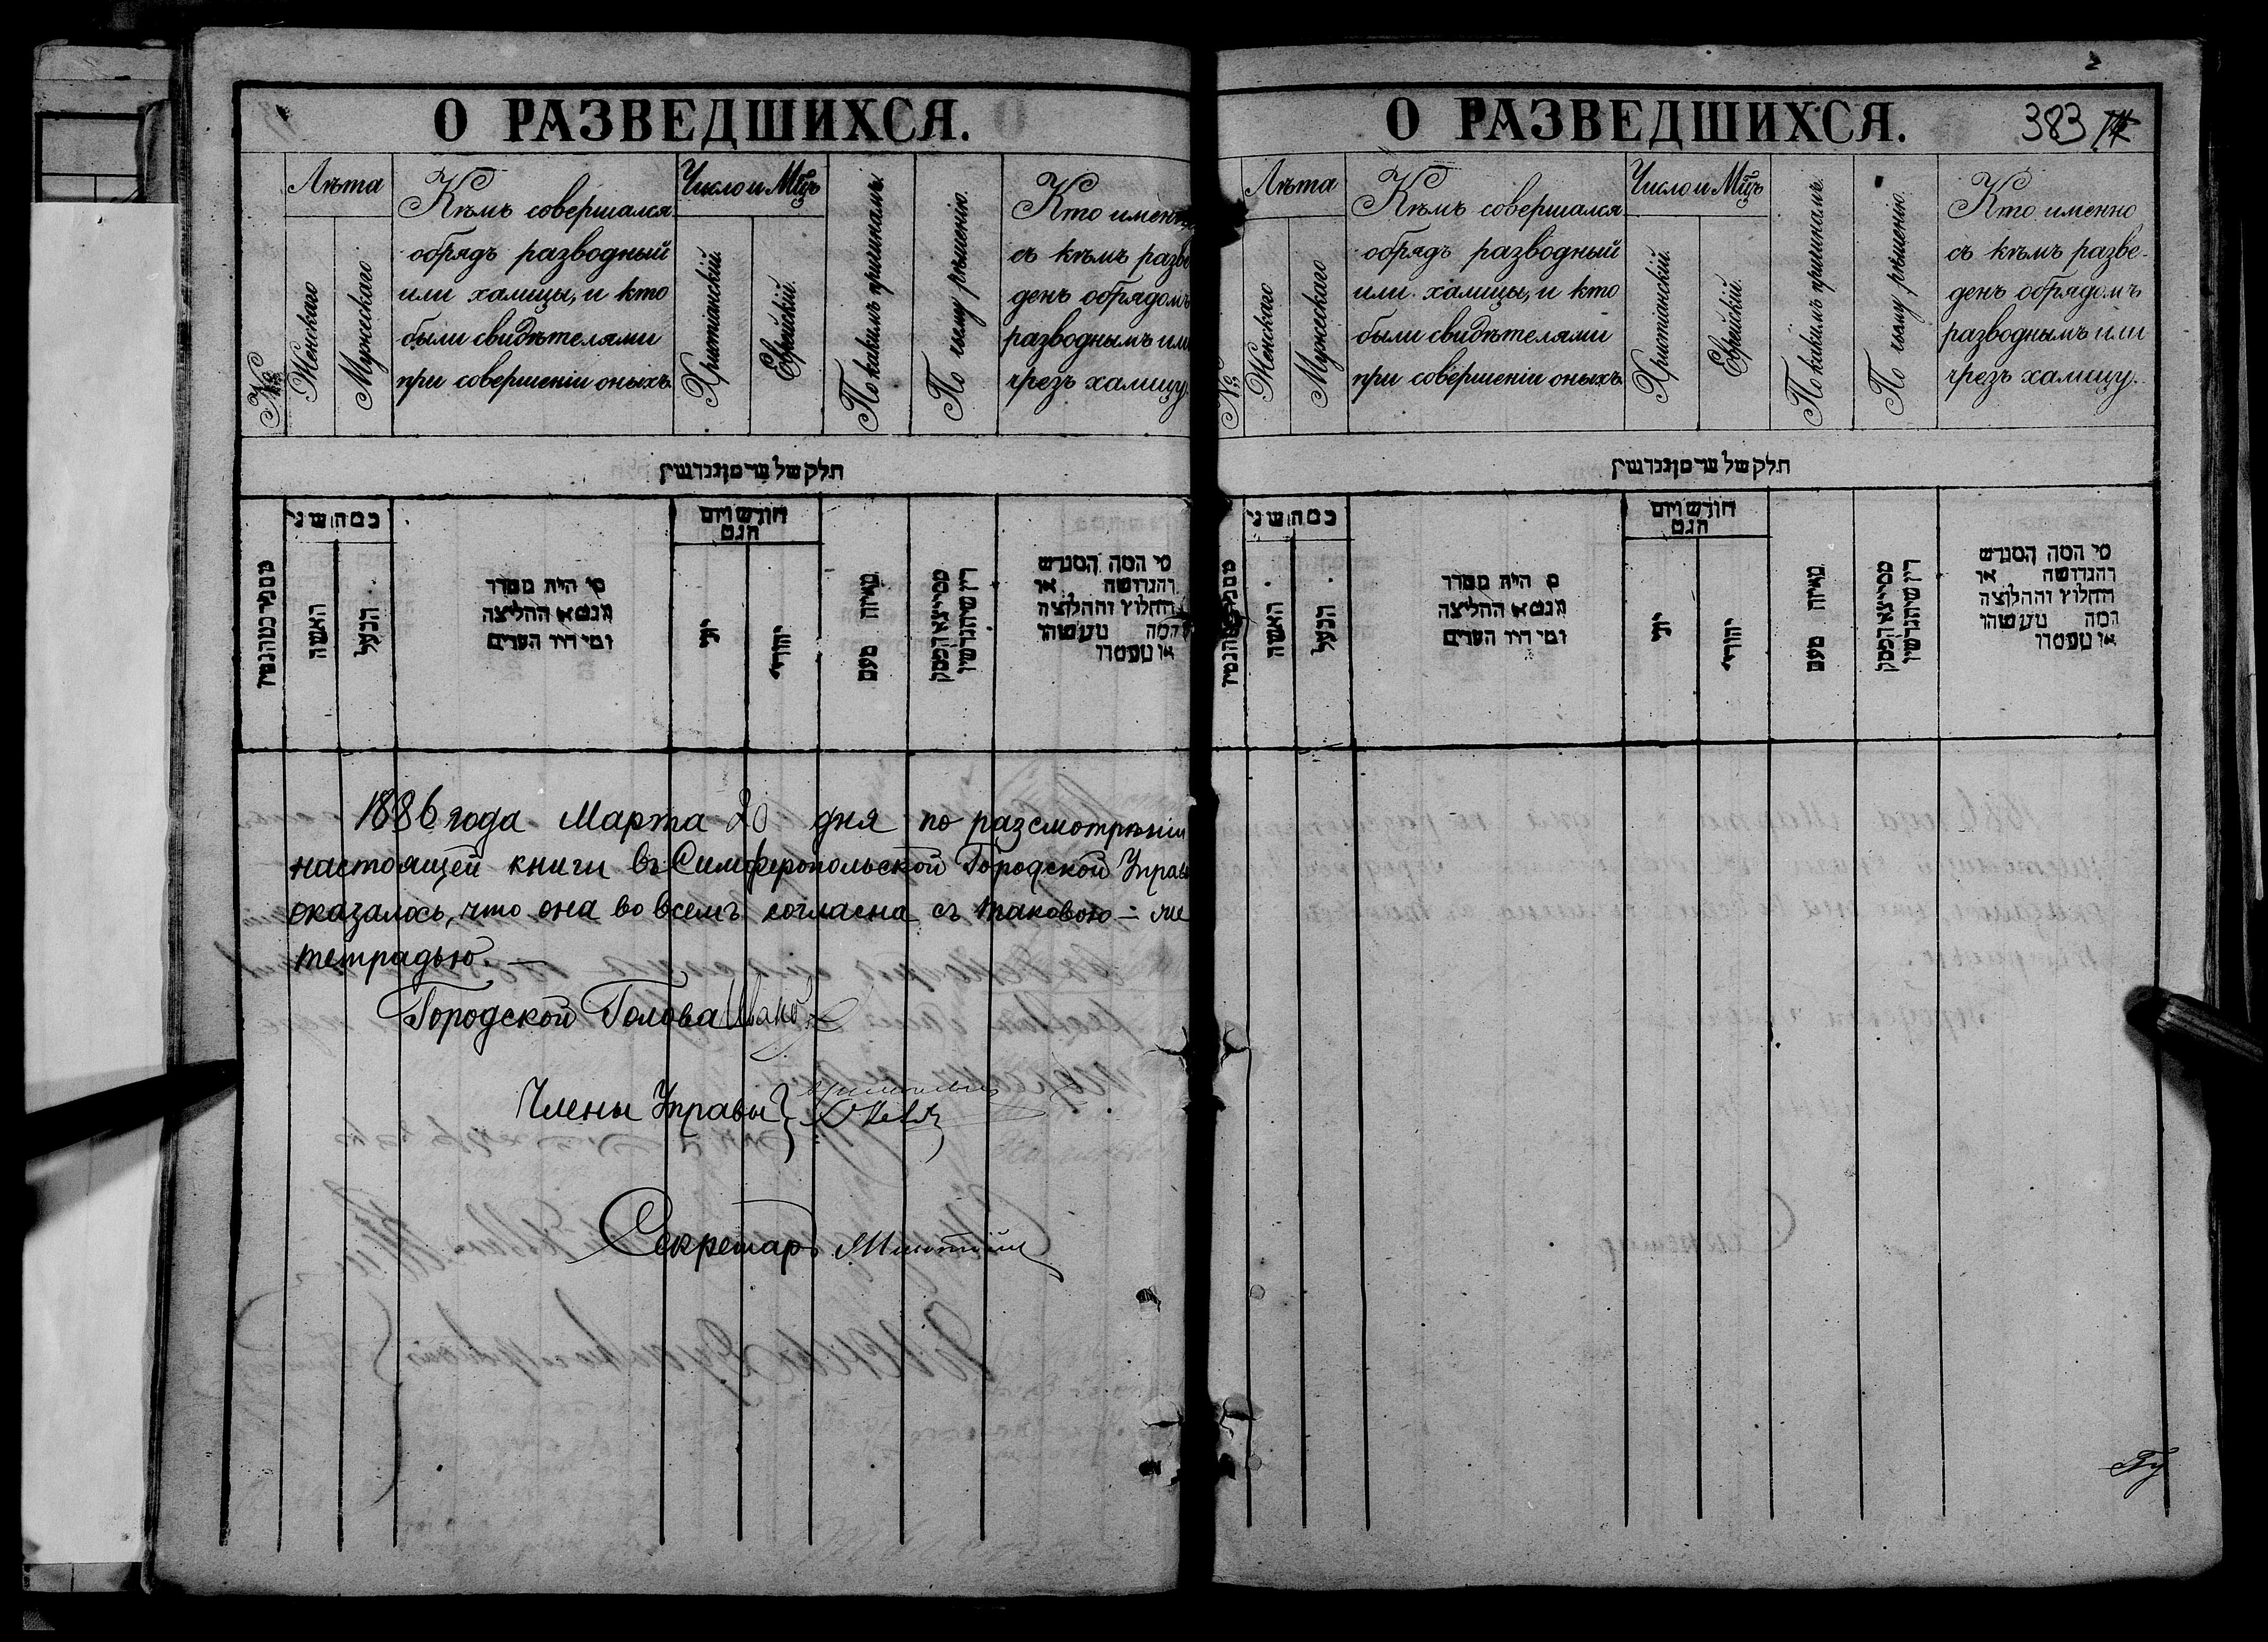 О РАЗВЕДШИХСЯ.
№
Лѣта
Женскаго
Мужескаго
Кѣмъ совершался
обрядъ разводный
или халицы, и кто
были свидѣтелями
при совершеніи оныхъ.
Число и Мцъ
Христіанскій.
Еврейскій.
По какимъ причинамъ.
По чьему рѣшенію.
Кто именно
съ кѣмъ разве
денъ обрядомъ
разводнымъ или
чрезъ халицу.
חלק של
כמה שני
האשה
הבעל
מי היה מסדר
הגט או החליצה
ומי היו העדים
חודש ויום
הגט
יוני
יהודי
מאיזה טעם
מי המה המגרש
והגרושה או
החולץ והחלוצה
1886 года Марта 20 дня по разсмотрѣніи
настоящей книги въ Симферопольской Городской Управѣ
оказалось, что она во всемъ согласна съ таковою-же
тетрадью. —
Городской Голова Ивановъ
Члены Управы
Секретарь
О РАЗВЕДШИХСЯ.
383
№
Лѣта
Женскаго
Мужескаго
Кѣмъ совершался
обрядъ разводный
или халицы, и кто
были свидѣтелями
при совершеніи оныхъ.
Число и Мцъ
Христіанскій.
Еврейскій.
По какимъ причинамъ.
По чьему рѣшенію.
Кто именно
съ кѣмъ разве-
денъ обрядомъ
разводнымъ или
чрезъ халицу.
חלק של
כמה שני
האשה
הבעל
היה מסדר
הגט או החליצה
ומי היו העדים
חודש ויום
הגט
יוני
יהודי
מאיזה טעם
מי המה המגרש
והגרושה או
החולץ והחלוצה